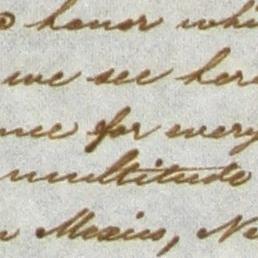 honor whi
we see here
nce for every
multitude
n Mexico, Ne